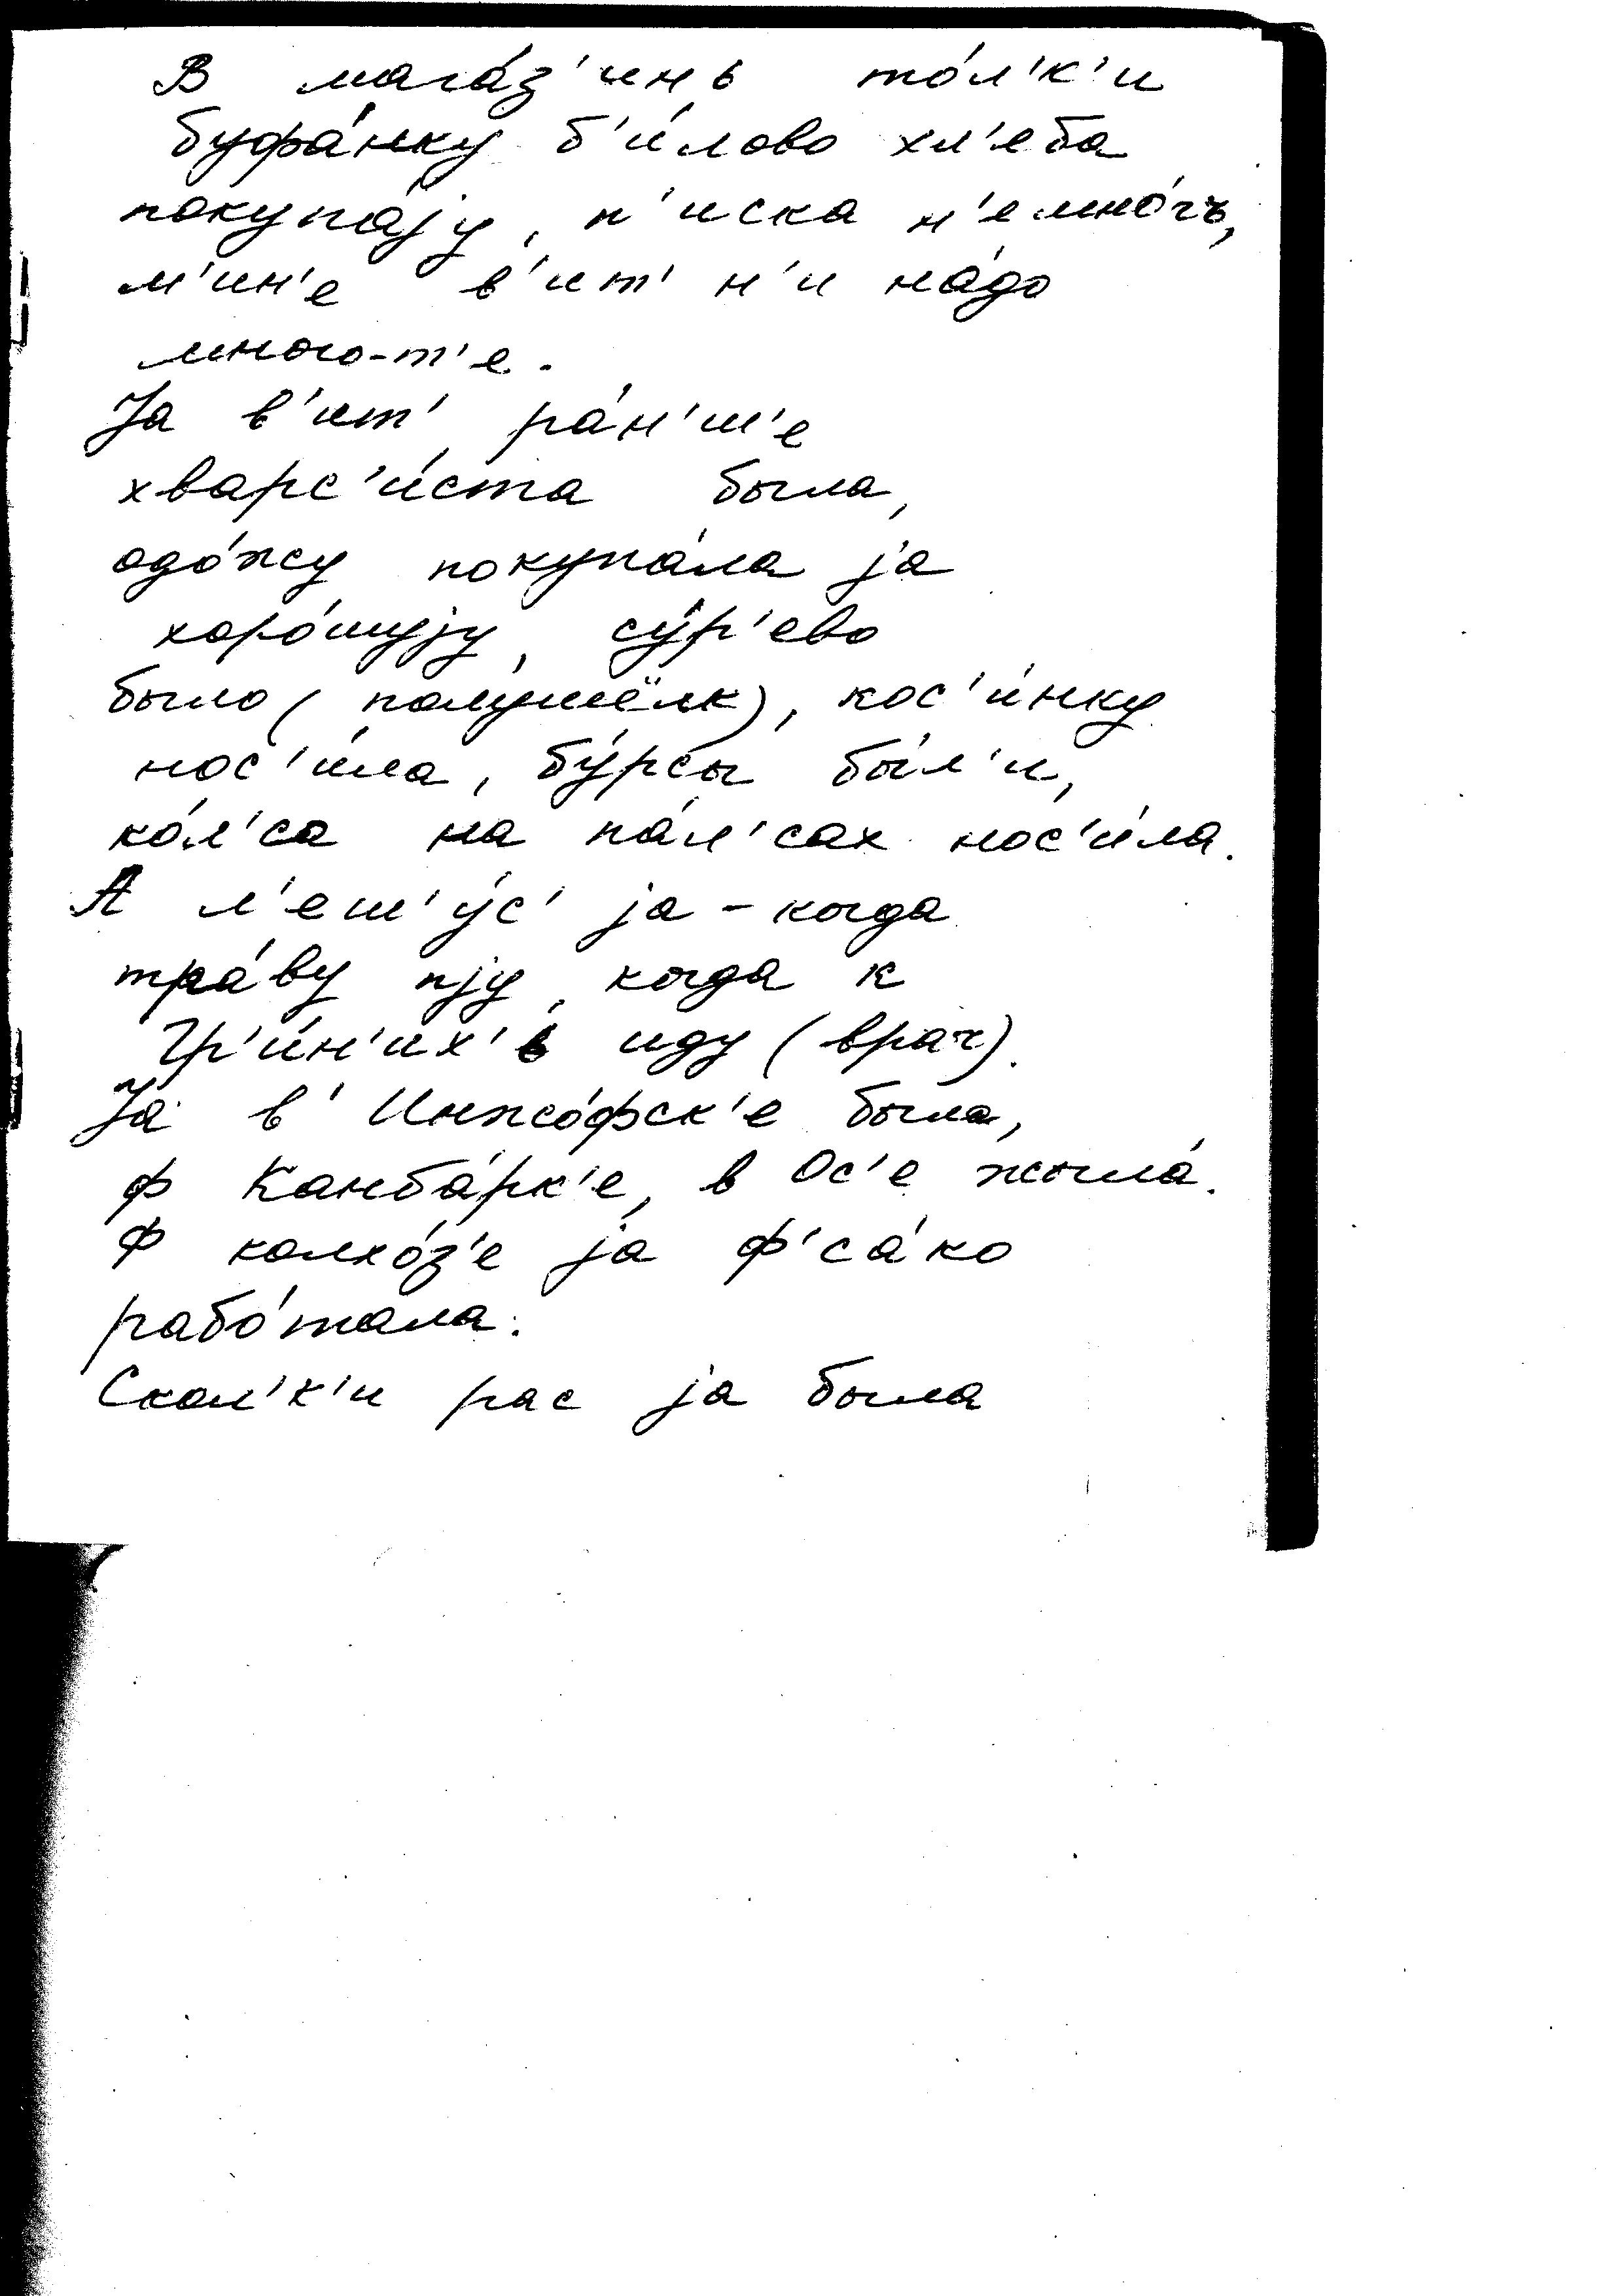 В мага́з'инь то́л'к'и
буфа́нку б'и́лово хл'еба
покупа́jу, п'иска н'емно́гъ,
м'ин'е в'ит' н'и на́до
много-т'е.
Jа в'ит' ра́н'ш'е
хварс'и́ста была,
одо́жу покупа́ла jа
хоро́шуjу, су́р'ево
было (полушёлк), кос'и́нку
нос'и́ла, бу́рсы бы́л'и,
ко́л'са на па́л'сах нос'и́ла.
А л'еш'у́с' jа - когда
тра́ву пjу, когда к
Гр'и́н'их'ь иду (врач).
Jа в' Инжо́фск'е была,
ф Канба́рк'е, в Ос'е жыла́.
Ф колхо́з'е jа ф'са́ко
рабо́тала.
Скол'к'и рас jа была